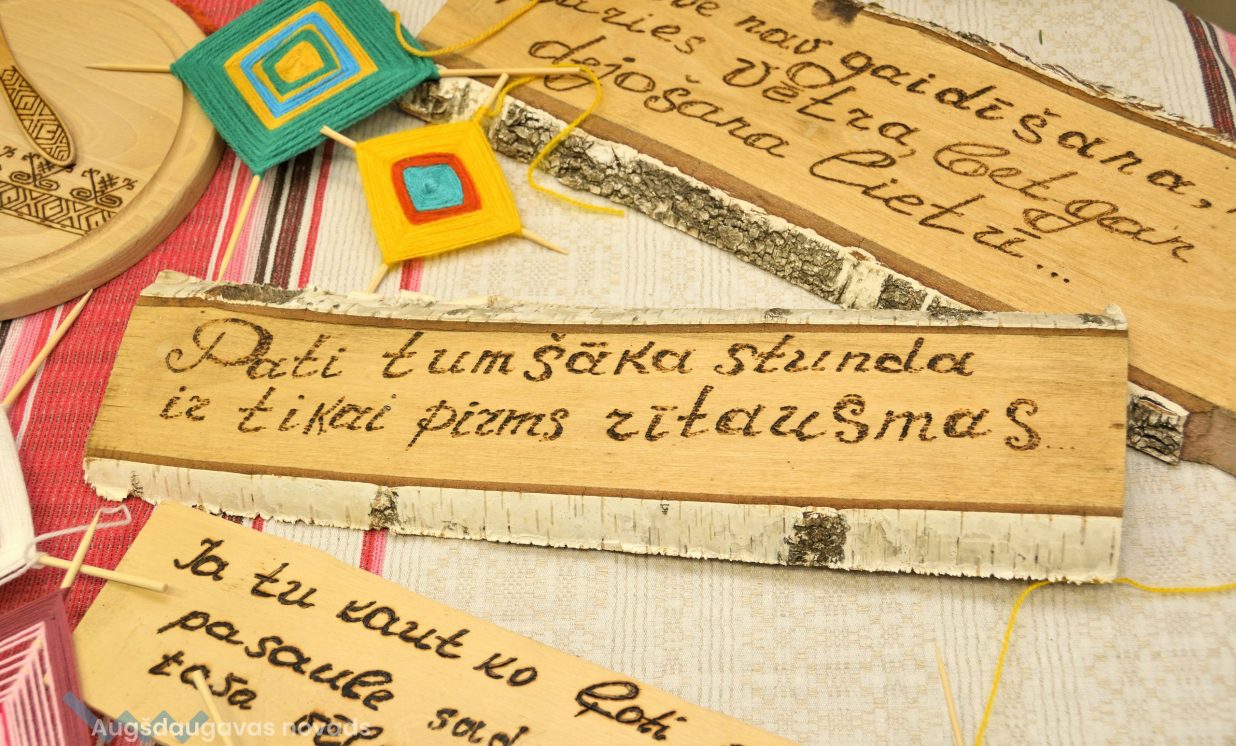 nav gaidīšana,
vētra, bet gan
dejošana lietū...
Pati tumšāka stunda
ir tikai pirms rītausmas...
Ja tu kaut ko ļoti
pasaule sad
Augšdaugavas novads